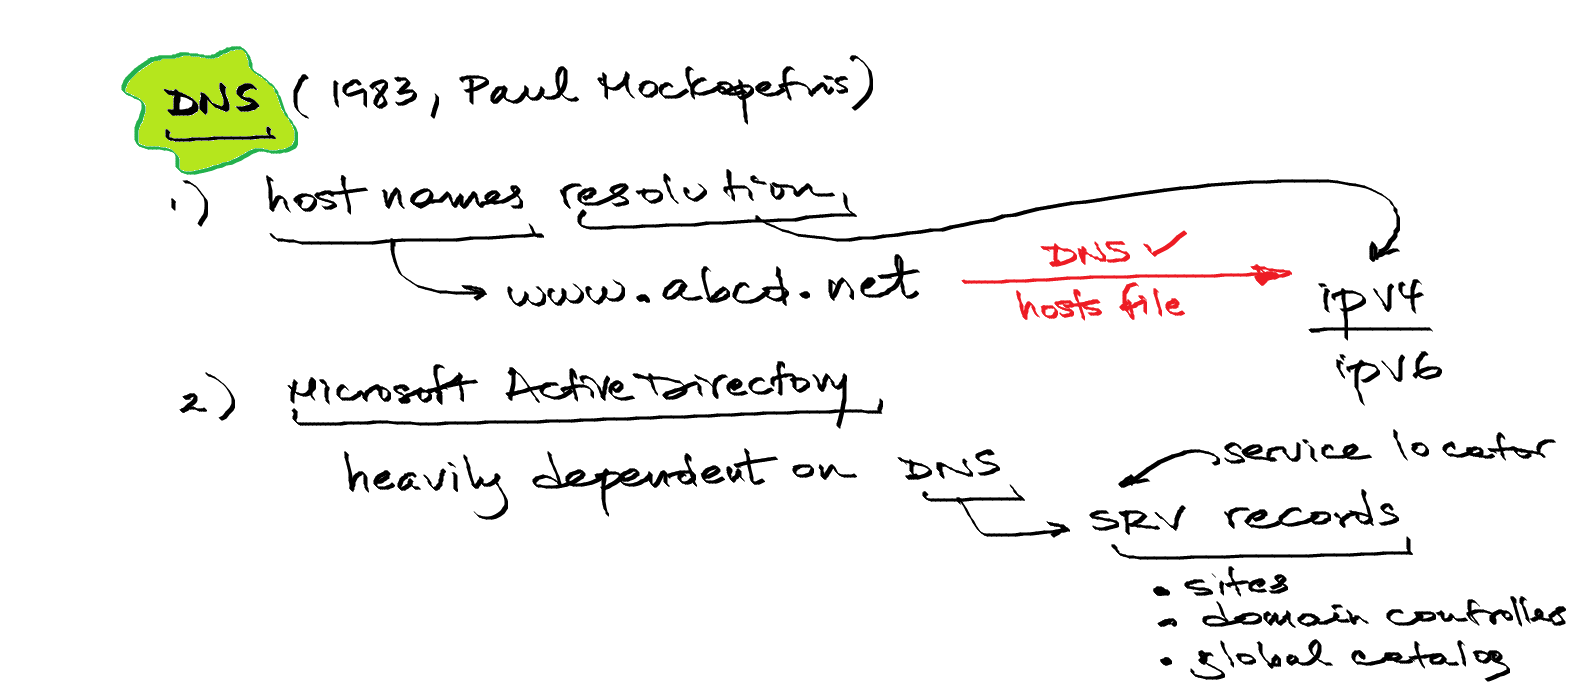 DNS (1983, Paul Mockapetris)
1) host names resolution
www.abcd.net
DNS ✓
hosts file
ipv4
ipv6
2) Microsoft Active Directory
heavily dependent on DNS
service locator
SRV records
• sites
• domain controlles
• global catalog